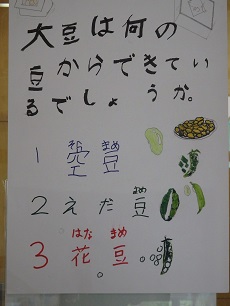 大豆は何の
豆からできてい
るでしょうか。
そら まめ
1 空豆
まめ
2 えだ豆
はな まめ
3 花豆。